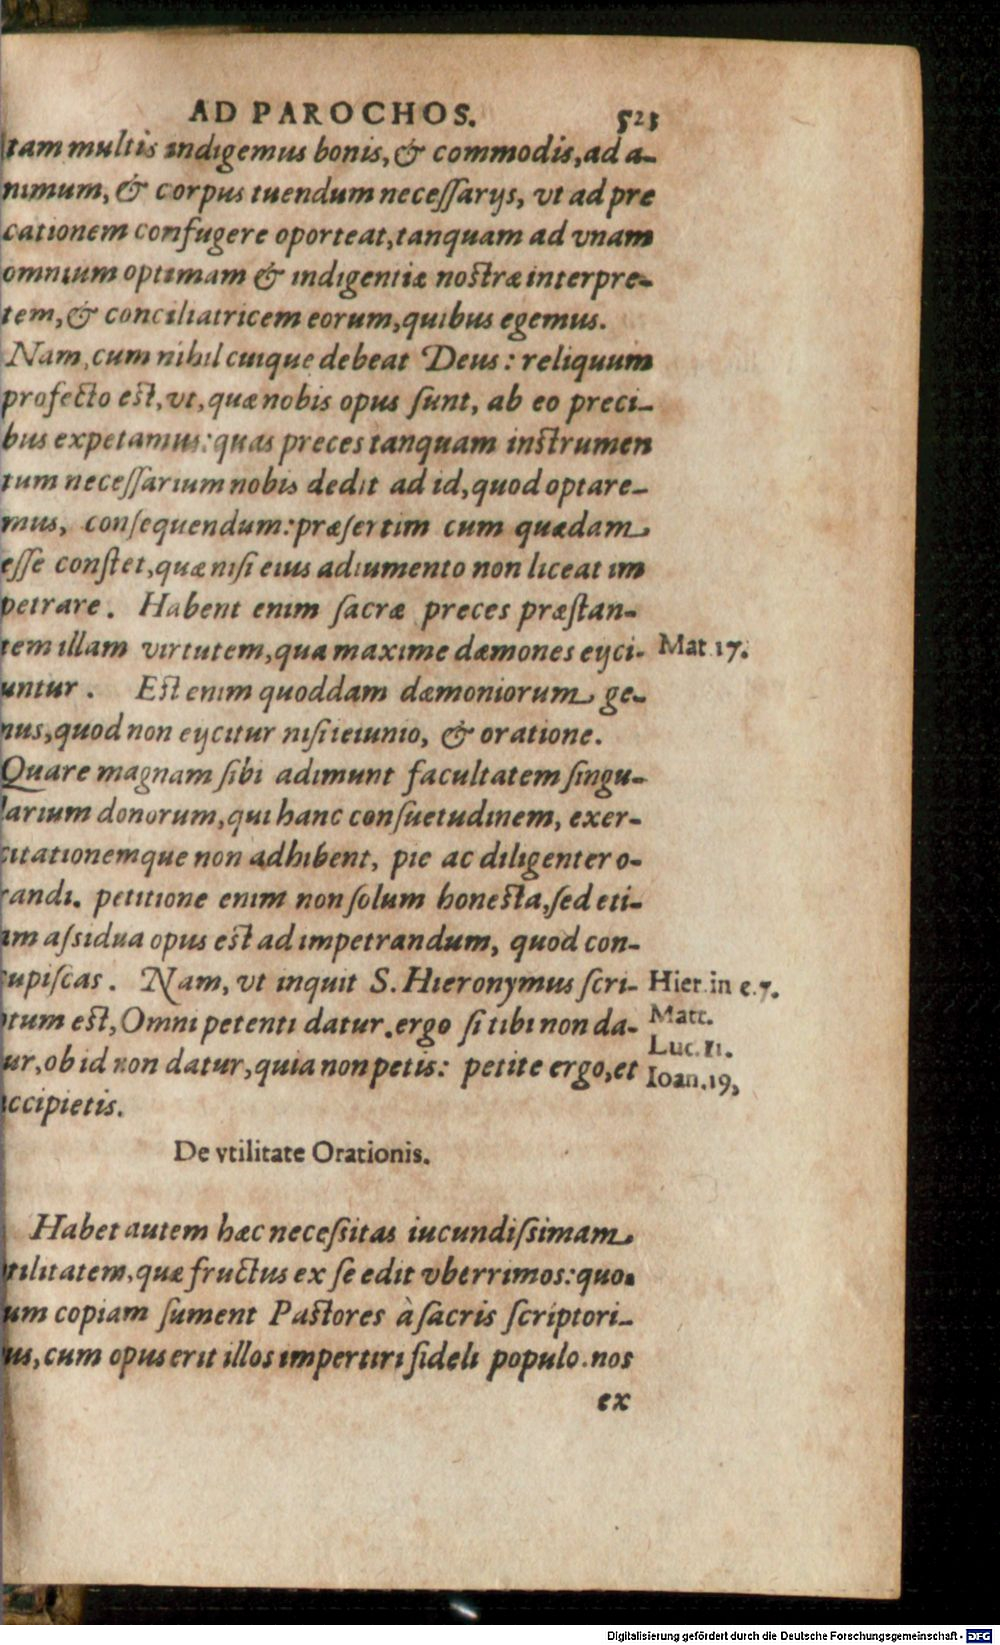 AD PAROCHOS. 523
tam multis indigemus bonis, & commodis, ad a-
nimum, & corpus tuendum necessarijs, vt ad pre
cationem confugere oporteat, tanquam ad vnam
omnium optimam & indigentiæ nostræ interpre-
tem, & conciliatricem eorum, quibus egemus.
Nam, cum nihil cuique debeat Deus: reliquum
profecto est, vt, quæ nobis opus sunt, ab eo preci-
bus expetamus: quas preces tanquam instrumen
tum necessarium nobis dedit ad id, quod optare-
mus, consequendum: præsertim cum quædam
esse constet, quæ nisi eius adiumento non liceat im
petrare. Habent enim sacræ preces præstan-
tem illam virtutem, qua maxime dæmones eijci- Mat. 17.
untur. Est enim quoddam dæmoniorum ge-
nus, quod non eijcitur nisi ieiunio, & oratione.
Quare magnam sibi adimunt facultatem singu-
larium donorum, qui hanc consuetudinem, exer-
citationemque non adhibent, pie ac diligenter o-
randi. petitione enim non solum honesta, sed eti-
am assidua opus est ad impetrandum, quod con-
cupiscas. Nam, vt inquit S. Hieronymus scri- Hier. in c. 7.
ptum est, Omni petenti datur. ergo si tibi non da- Matt.
Luc. 11.
tur, ob id non datur, quia non petis: petite ergo, et Ioan. 19,
accipietis.
De vtilitate Orationis.
Habet autem hæc necessitas iucundissimam
vtilitatem, quæ fructus ex se edit vberrimos: quo-
rum copiam sument Pastores à sacris scriptori-
bus, cum opus erit illos impertiri fideli populo. nos
ex
Digitalisierung gefördert durch die Deutsche Forschungsgemeinschaft - DFG